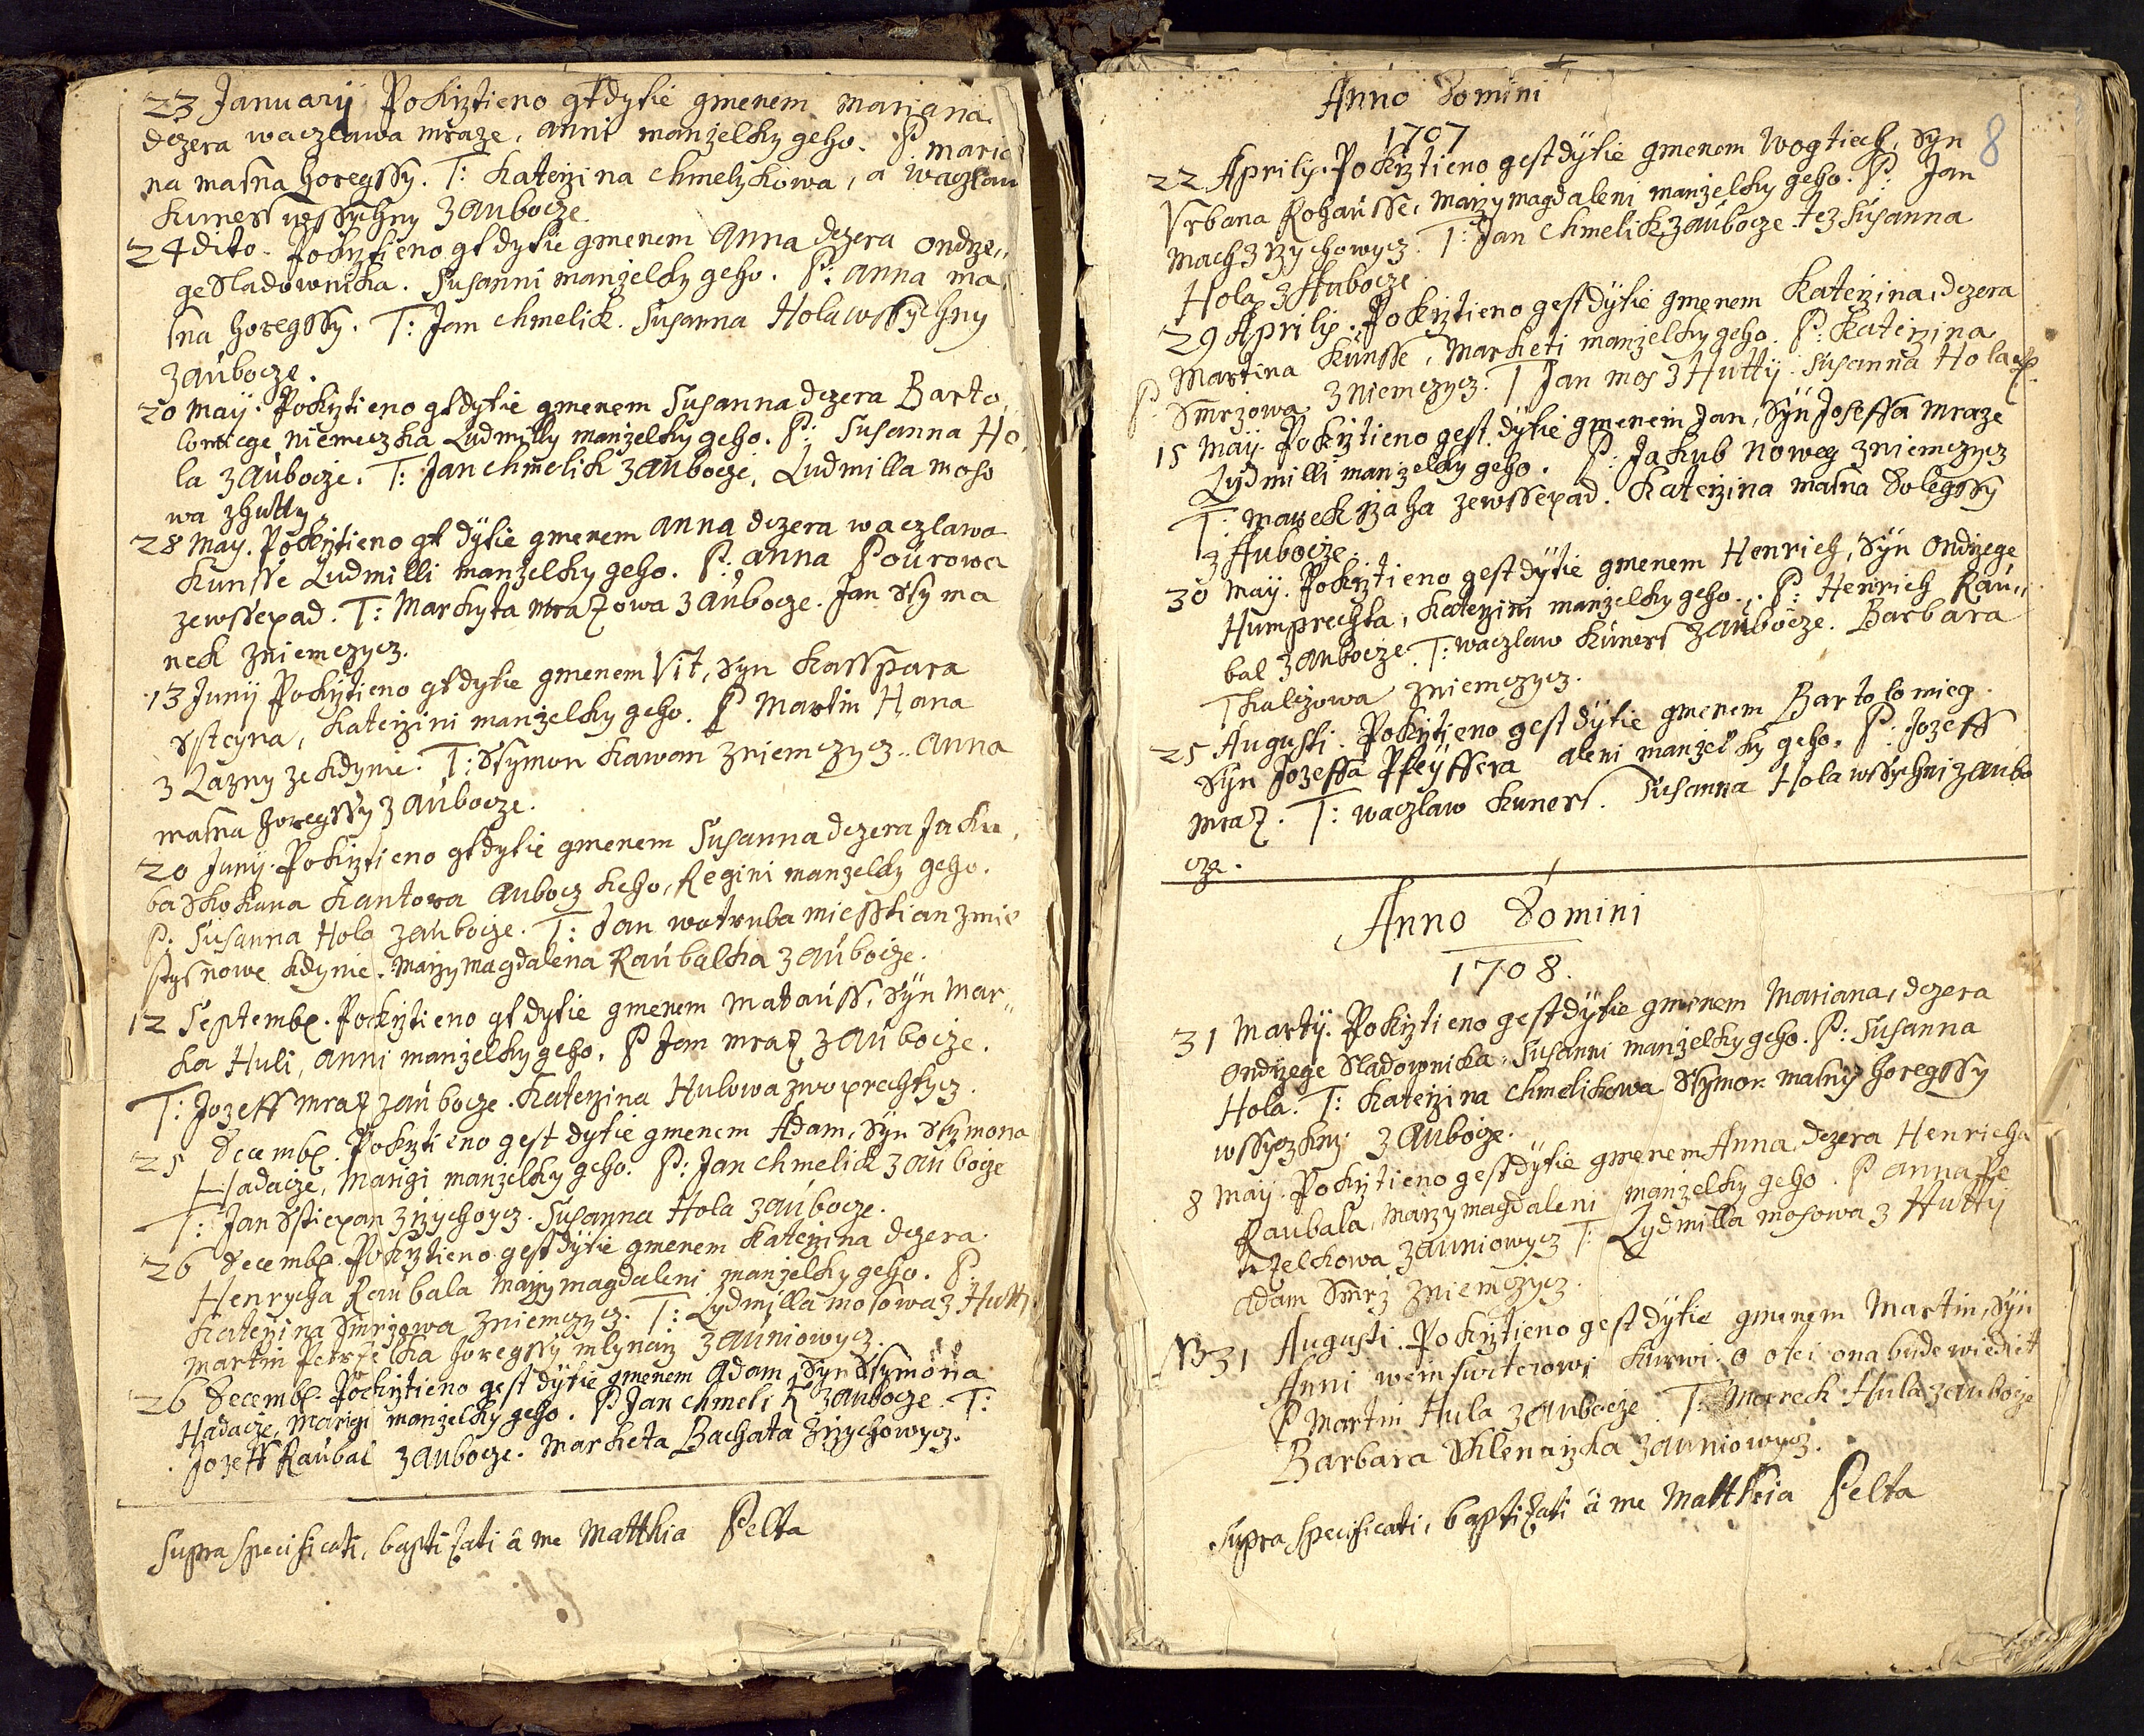 23 January Pokrztieno gt dytie gmenem Mariana
dczera waczlawa mraze, anni manzelky geho. P maria
na matna horegssy. T: Katerzina chmelzkowa, a waczlau
Kuness wssychny z aubocze
24 dito. Pokrztieno gt dytie gmenem Anna dczera ondrze,,
ge Sladownicka. Susanni manzelky geho. P: anna ma
tna horegssy. T: Jan chmelick. Susanna Hola wssychny
z aubocze.
20 may. Pokrztieno gt dytie gmenem Susanna dczera Barto,
lomiege niemeczka Ludmilly manzelky geho. P: Susanna Ho,
la z aubocze. T: Jan chmelick z aubocze, Ludmilla moso
wa z hutty.
28 may. Pokrztieno gt dytie gmenem anna dczera waczlawa
Kunsse Ludmilli manzelky geho. P: anna Pourowa
ze wssepad. T: Markyta mrazowa z aubocze. Jan Ssyma
neck z niemczycz.
13 Juny Pokrztieno gt dytie gmenem Vit, Syn Kasspara
Ssteyra, Katerzini manzelky geho. P Martin Hana
z Lazny ze kdyne. T: Ssymon kawan z niemczycz. anna
matna horegssy z aubocze.
20 Juny. Pokrztieno gt dytie gmenem Susanna dczera Jaku,
ba Skokana Kantora auboczkeho, Regini manzelky geho.
P: Susanna Hola z aubocze. T: Jan wotruba miesstian z mie
stys nowe kdynie. Marzy magdalena Raubalka z aubocze.
12 Septemb. Pokrztieno gt dytie gmenem matauss, Syn Mar,,
ka Huli, anni manzelky geho. P Jan mraz z aubocze.
T: Jozeff mraz z aubocze. Katerzina Hulowa z woprechtycz.
25 Decemb. Pokrztieno gest dytie gmenem Adam, Syn Ssymona
Hadacze, Marigi manzelky geho. P: Jan chmelick z aubocze
T: Jan Sstiepan z rzychowycz. Susanna Hola z aubocze.
26 Decemb. Pokrztieno gest dytie gmenem Katerzina dczera
Henrycha Raubala Marzy magdaleni manzelky geho. P:
Katerzina Smrzowa z niemczycz. T: Lydmilla mosowa z Hutty
martin Petrzelka horegssy mlynarz z auniowycz.
26 Decemb. Pokrztieno gest dytie gmenem Adam Syn Ssymona
Hadacze, Marigi manzelky geho. P Jan chmelik z aubocze. T:
Jozeff Raubal z aubocze. Marketa Bachata z rzychowycz.
Supra specificati, baptizati â me Matthia Pelta
Anno Domini
1707
8
22 Aprily. Pokrztieno gest dytie gmenem Wogtiech, Syn
Vrbana Rohausse, Marzy magdaleni manzelky geho. P: Jan
Mach z rzychowycz. T: Jan chmelick z aubocze tez Susanna
Hola z Aubocze
29 Aprilis. Pokrztieno gest dytie gmenem Katerzina, dczera
Martina Kunsse, Marketi manzelky geho. P: Katerzina
P. Smrzowa z niemczycz. T Jan mos z Hutty. Susanna Hola
15 May. Pokrztieno gest dytie gmenem Jan, Syn Joseffa mraze
Lydmilli manzelky geho. P: Jakub Noweg z niemczycz
T: mareck rzaha ze wssepad. Katerzina matna Dolegssy
z Aubocze.
30 May. Pokrztieno gest dytie gmenem Henrich, Syn ondrzege
Humprechta, Katerzini manzelky geho. P: Henrich Rau,,
bal z aubocze. T: waczlaw Kuness z aubocze. Barbara
Tkalczowa z niemczycz.
25 Augusti. Pokrztieno gest dytie gmenem Bartolomieg
Syn Jozeffa Pfeyffera aleni manzelky geho. P: Jozeff
mraz. T: waczlaw Kuness. Susanna Hola wssychni z aubo
cze.
Anno Domini
1708.
31 Marty. Pokrztieno gest dytie gmenem Mariana, dczera
ondrzege Sladownicka, Susanni manzelky geho. P: Susanna
Hola. T: Katerzina chmelikowa Ssymon matny horegssy
wssyczkni z aubocze.
8 May. Pokrztieno gest dytie gmenem Anna, dczera Henricha
Raubala, Marzy magdaleni manzelky geho. P anna Pe
trzelkowa z auniowycz T: Lydmilla mosowa z Hutty
adam Smrz z niemczycz.
NB 31 Augusti. Pokrztieno gest dytie gmenem Martin, Syn
Anni weinfurterowi Kurwi. o otci ona bude wiediet
P Martin Hula z aubocze T: Mareck Hula z aubocze
Barbara Sklenarzka z auniowycz.
Supra specificati, baptizati â me Matthia Pelta